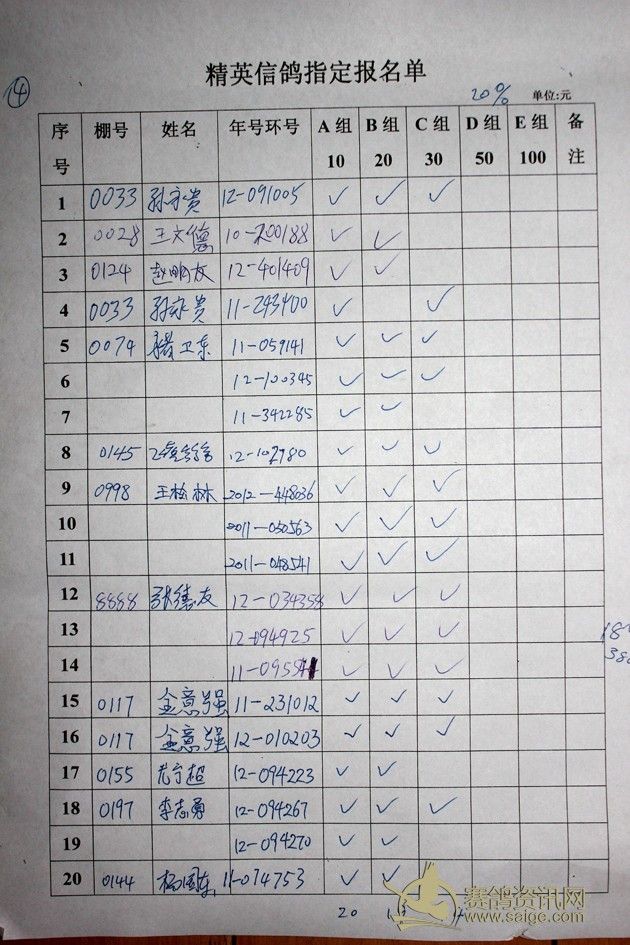 14
精英信鸽指定报名单
20% 单位:元
序号 棚号 姓名 年号环号 A组 10 B组 20 C组 30 D组 50 E组 100 备注
1 0033 孙永贵 12-091005 ✓ ✓ ✓
2 0028 王文德 10-200188 ✓ ✓
3 0124 赵鹏友 12-401409 ✓ ✓
4 0033 孙永贵 11-243400 ✓ ✓
5 0074 卫东 11-059141 ✓ ✓ ✓
6 12-100345 ✓ ✓ ✓
7 11-342285 ✓ ✓
8 0145 12-102980 ✓ ✓ ✓
9 0998 王松林 2012-448036 ✓ ✓ ✓
10 2011-050563 ✓ ✓ ✓
11 2011-048541 ✓ ✓ ✓
12 8888 张德友 12-034358 ✓ ✓ ✓
13 12-094925 ✓ ✓ ✓
14 11-0955 ✓ ✓ ✓
15 0117 金意强 11-231012 ✓ ✓ ✓
16 0117 金意强 12-010203 ✓ ✓ ✓
17 0155 超 12-094223 ✓ ✓
18 0197 李志勇 12-094267 ✓ ✓ ✓
19 12-094270 ✓ ✓
20 0144 杨国东 11-074753 ✓ ✓
20
赛鸽资讯网
www.saige.com